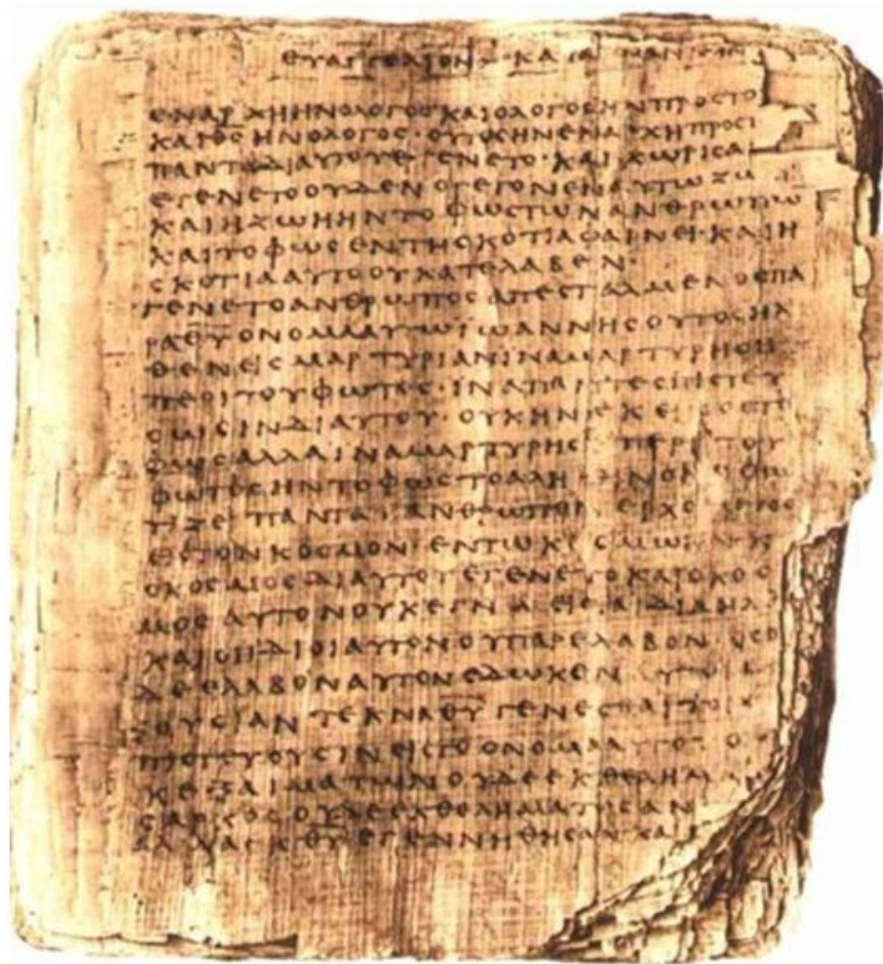 ΕΥΑΓΓΕΛΙΟΝ ΚΑΤΑ
ΕΝΑΡΧΗΗΝΟΛΟΓΟΣΚΑΙΟΛΟΓΟΣΗΝΠΡΟΣΤΟ
ΚΑΙΘΣΗΝΟΛΟΓΟΣ·ΟΥΤΟΣΗΝΕΝΑΡΧΗΠΡΟΣΤ
ΠΑΝΤΑΔΙΑΥΤΟΥΕΓΕΝΕΤΟ·ΚΑΙΧΩΡΙΣΑΥ
ΕΓΕΝΕΤΟΟΥΔΕΝΟΓΕΓΟΝΕΝΑΥΤΩΖΩ
ΚΑΙΗΖΩΗΗΝΤΟΦΩΣΤΩΝΑΝΘΡΩΠΩ
ΚΑΙΤΟΦΩΣΕΝΤΗΣΚΟΤΙΑΦΑΙΝΕΙ·ΚΑΙΗ
ΣΚΟΤΙΑΑΥΤΟΟΥΚΑΤΕΛΑΒΕΝ·
ΓΕΝΕΤΟΑΝΘΡΩΠΟΣΑΠΕΣΤΑΛΜΕΝΟΣΠΑ
ΡΑΘΥΟΝΟΜΑΑΥΤΩΙΩΑΝΝΗΣΟΥΤΟΣΗΛ
ΘΕΝΕΙΣΜΑΡΤΥΡΙΑΝΙΝΑΜΑΡΤΥΡΗΣΗ
ΠΕΡΙΤΟΥΦΩΤΟΣ·ΙΝΑΠΑΝΤΕΣΠΙΣΤΕΥ
ΣΩΣΙΝΔΙΑΥΤΟΥ·ΟΥΚΗΝΕΚΕΙΝΟΣΤΟ
ΦΩΣΑΛΛΑΙΝΑΜΑΡΤΥΡΗΣΗ ΠΕΡΙΤΟΥ
ΦΩΤΟΣΗΝΤΟΦΩΣΤΟΑΛΗ
ΤΙΖΕΙΠΑΝΤΑΑΝΘΡΩΠΟΝ
ΤΟΝΚΟΣΜΟΝ·ΕΝΤΩΚ
ΟΚΟΣΜΟΣΔΙΑΥΤΟΥΕΓΕΝΕΤΟΚΑΙΟΚΟΣ
ΜΟΣΑΥΤΟΝΟΥΚΕΓΝ
ΚΑΙΟΙΙΔΙΟΙΑΥΤΟΝΟΥΠΑΡΕΛΑΒΟΝ·ΟΣΟ
ΔΕΕΛΑΒΟΝΑΥΤΟΝΕΔΩΚΕΝ
ΖΟΥΣΙΑΝΤΕΚΝΑΘΥΓΕΝΕΣΘΑΙΤΟΙΣ
ΠΙΣΤΕΥΟΥΣΙΝΕΙΣΤΟΟΝΟΜΑΑΥΤΟΥ
ΚΕΞΑΙΜΑΤΩΝΟΥΔΕΕΚΘΕΛΗΜΑ
ΣΑΡΚΟΣΟΥΔΕΕΚΘΕΛΗΜΑΤΟΣΑΝ
ΑΛΛΑΕΚΘΥΕΓΕΝΝΗΘΗΣΑΝΚΑΙ